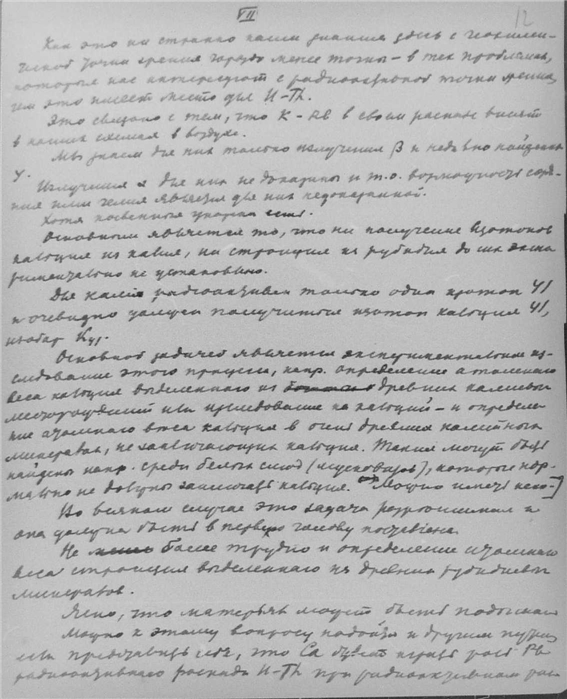 VII
12
Как это ни странно наши знания здесь с геохими-
ческой точки зрения гораздо менее точны – в тех проблемах,
которые нас интересуют с радиоактивной точки зрения,
чем это имеет место для U-Th.
Это связано с тем, что K-Rb в своем распаде висят
в наших схемах в воздухе.
Мы знаем для них только излучения β и недавно найденные
γ.
Излучения α для них не доказаны и т.о.
гелия является для них недоказанной.
Хотя косвенные указания есть.
Основным является то, что ни получение изотопов
кальция из калия, ни стронция из рубидия до сих экспе
риментально не установлено.
Для калия радиоактивен только один изотоп 41
и очевидно должен получиться изотоп кальция 41,
изобар K41.
Основной задачей является экспериментальное ис-
следование этого процесса, напр. определение атомного
веса кальция выделенного из древних калиевых
месторождений или исследование на кальций – и определе
ние атомного веса кальция в очень древних калиевых
минералах, не заключающих кальция. Такие могут быть
найдены напр. среди белых слюд (мусковитов), которые нор-
мально не должны заключать кальция. Можно
Во всяком случае это задача разрешимая и
она должна быть в первую голову поставлена.
Не более трудно и определение атомного
веса стронция выделенного из древних рубидиевых
минералов.
Ясно, что матерьял может быть
Можно к этому вопросу подойти и другим путем
если представить себе, что Ca будет играть роль Pb
радиоактивного распада U-Th при радиоактивном рас-